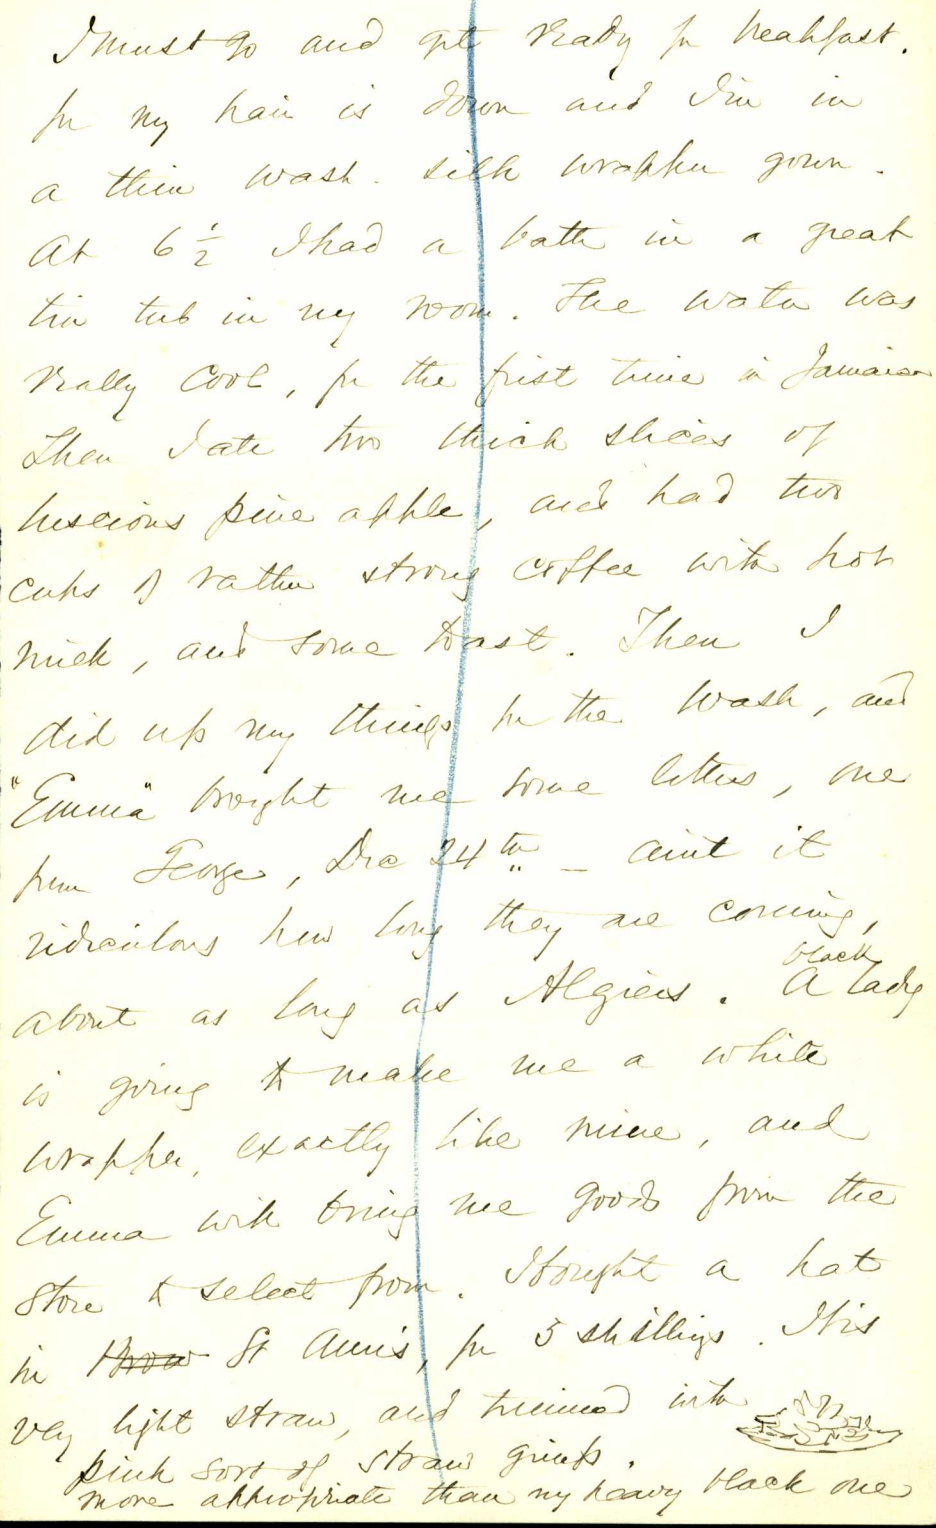 I must go and get ready for breakfast.
for my hair is down and I'm in
a thin wash silk wrapper gown.
At 6 1/2 I had a bath in a great
tin tub in my room. The water was
really cool, for the first time in Jamaica
Then I ate two thick slices of
luscious pine apple, and had two
cups of rather strong coffee with hot
milk, and some toast. Then I
did up my things for the wash, and
"Emma" brought me some letters, one
from George, Dec 24th - aint it
ridiculous how long they are coming,
about as long as Algiers. A black lady
is going to make me a white
wrapper, exactly like mine, and
Emma will bring me goods from the
store to select from. I bought a hat
in St Ann's, for 5 shillings. It is
very light straw, and trimmed with
pink sort of straw gimp.
more appropriate than my heavy black one